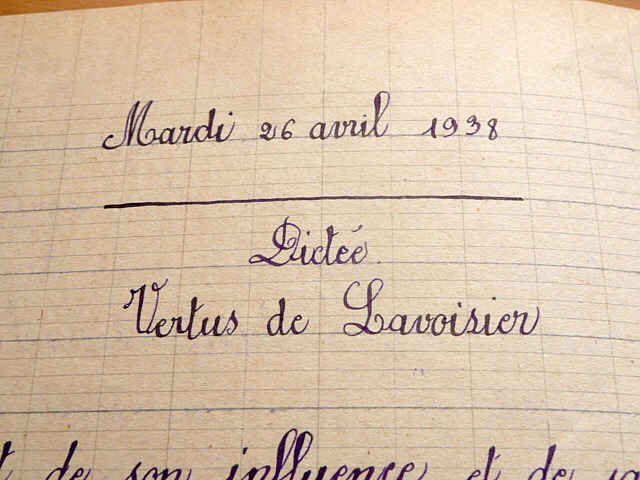 Mardi 26 avril 1938
Dictée
Vertus de Lavoisier
de son influence et de